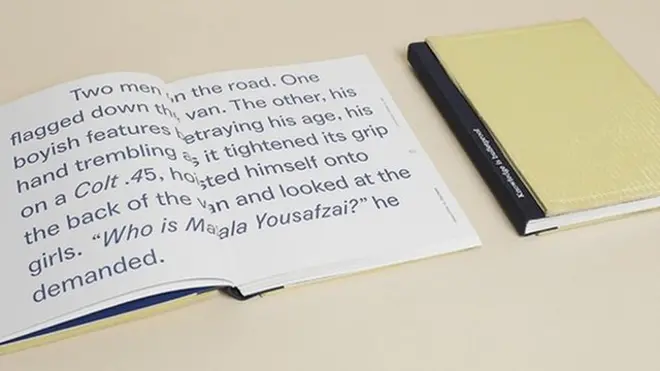 Two men in the road. One
flagged down the van. The other, his
boyish features betraying his age, his
hand trembling as it tightened its grip
on a Colt .45, hoisted himself onto
the back of the van and looked at the
girls. “Who is Malala Yousafzai?” he
demanded.
Knowledge is bulletproof